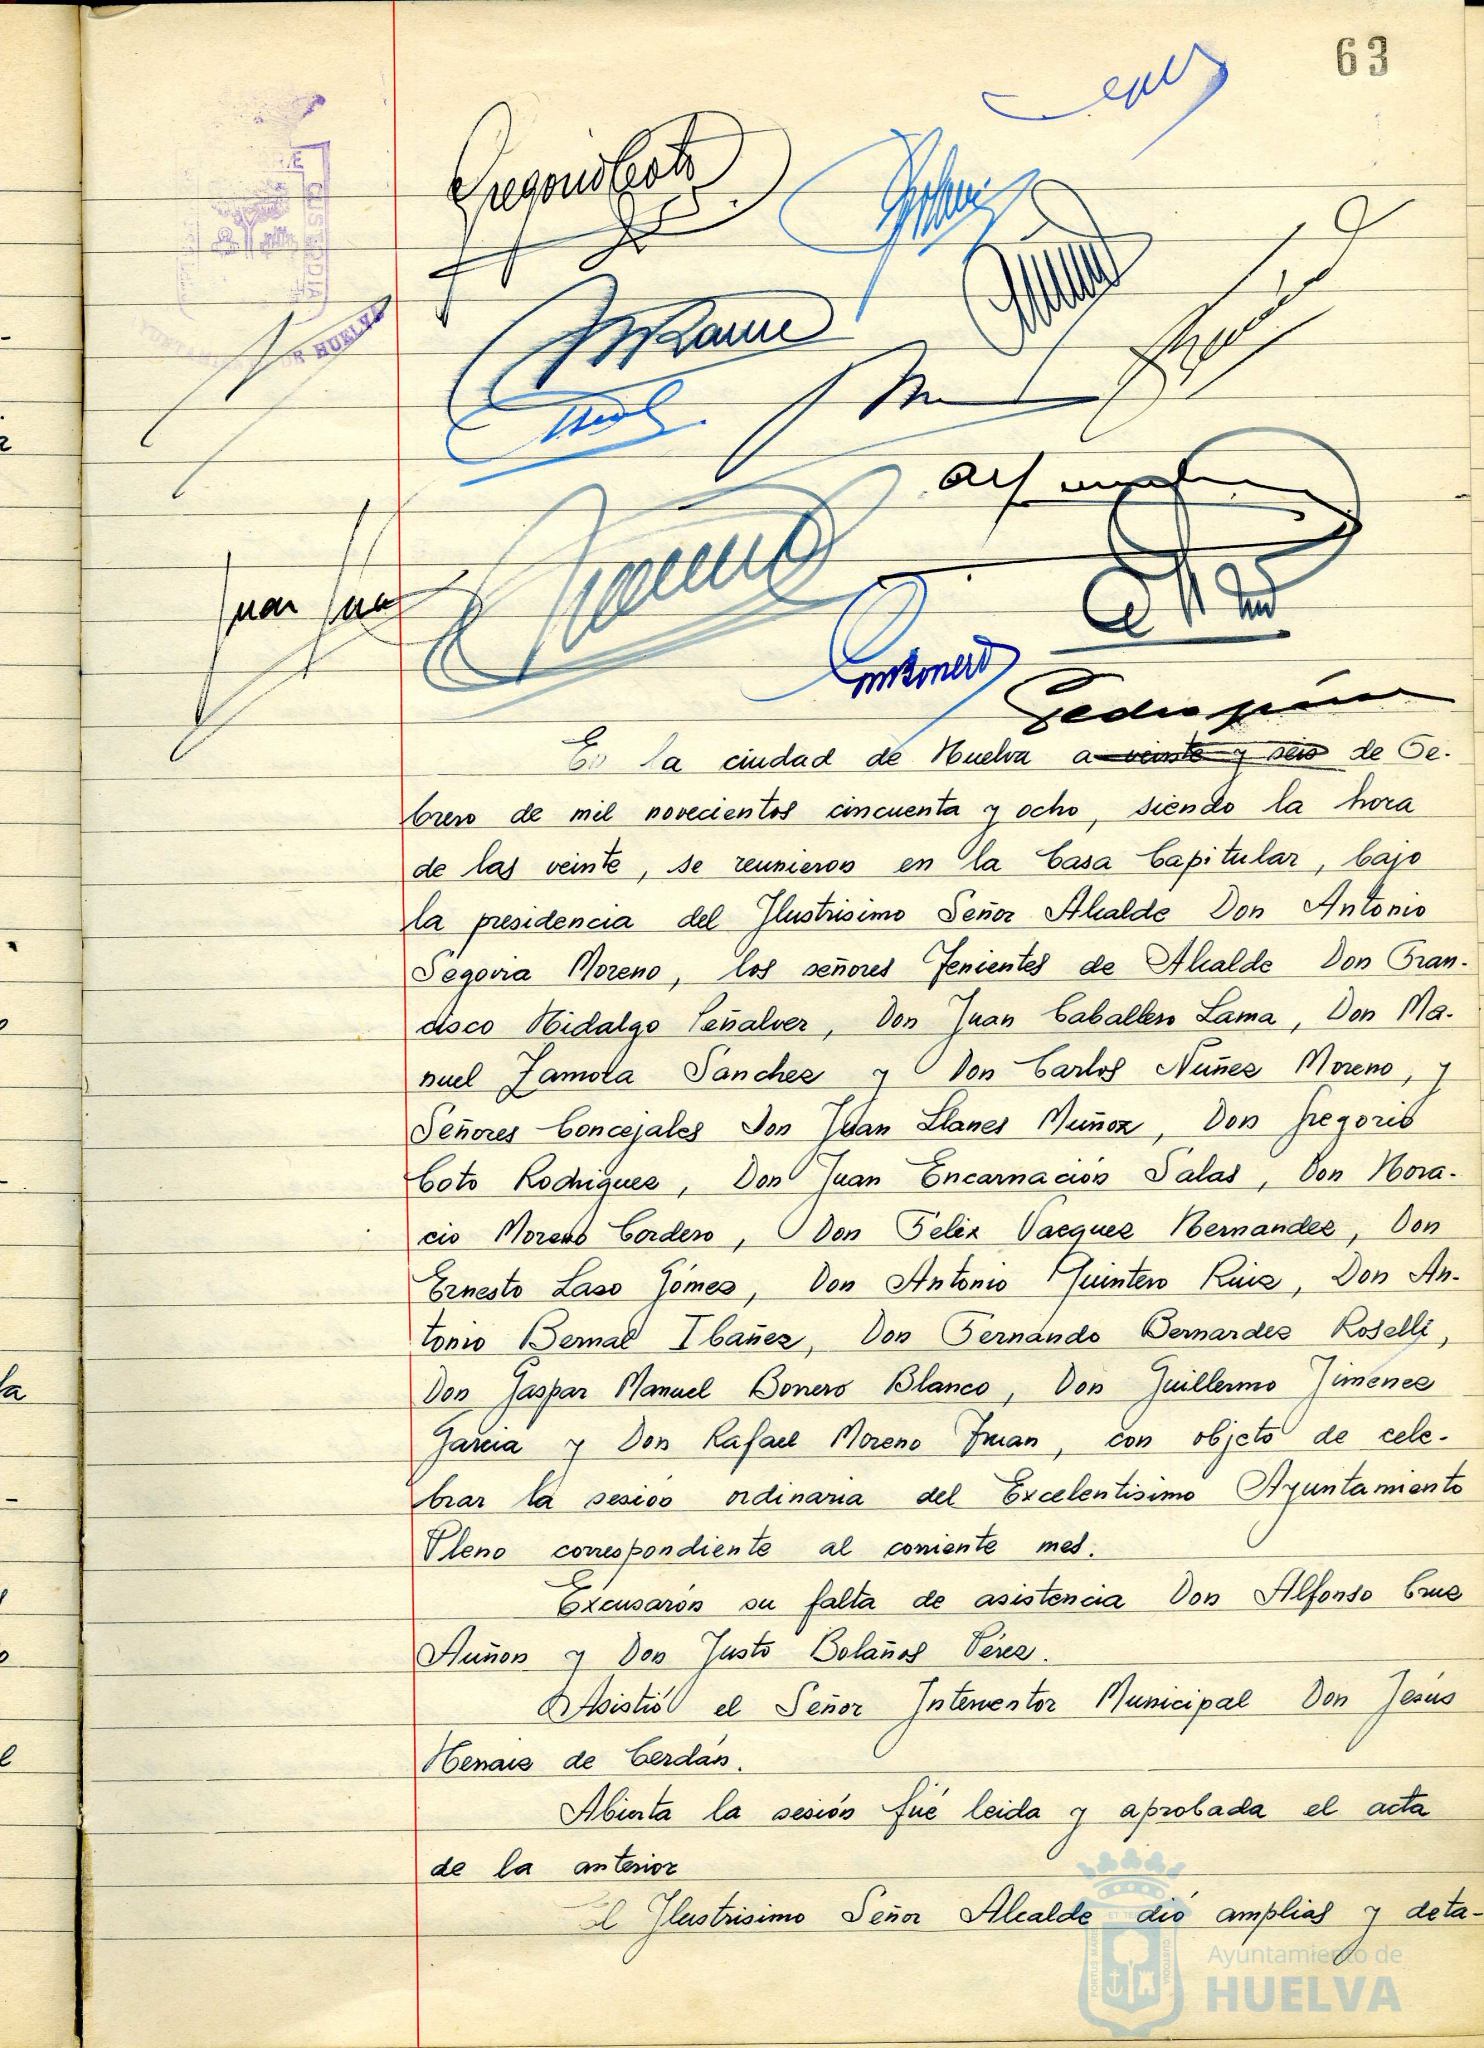 63
Gregorio Coto
CUSTODIA
DE HUELVA
Juan
Pedro
En la ciudad de Huelva a veinte y seis de Fe-
brero de mil novecientos cincuenta y ocho, siendo la hora
de las veinte, se reunieron en la Casa Capitular, bajo
la presidencia del Ilustrisimo Señor Alcalde Don Antonio
Segovia Moreno, los señores Tenientes de Alcalde Don Fran-
cisco Hidalgo Peñalver, Don Juan Caballero Lama, Don Ma-
nuel Zamora Sanchez y Don Carlos Nuñez Moreno, y
Señores Concejales Don Juan Llanes Muñoz, Don Gregorio
Coto Rodriguez, Don Juan Encarnación Salas, Don Hora-
cio Moreno Cordero, Don Felix Vazquez Hernandez, Don
Ernesto Laso Gómez, Don Antonio Quintero Ruiz, Don An-
tonio Bernal Ibañez, Don Fernando Bernardez Roselli,
Don Gaspar Manuel Bonero Blanco, Don Guillermo Jimenez
Garcia y Don Rafael Moreno, con objeto de cele-
brar la sesión ordinaria del Excelentisimo Ayuntamiento
Pleno correspondiente al corriente mes.
Excusarón su falta de asistencia Don Alfonso Cruz
Auñon y Don Justo Bolaños Pérez.
Asistió el Señor Interventor Municipal Don Jesús
de Cerdán.
Abierta la sesión fué leida y aprobada el acta
de la anterior
El Ilustrisimo Señor Alcalde dió amplias y deta-
Ayuntamiento de
HUELVA